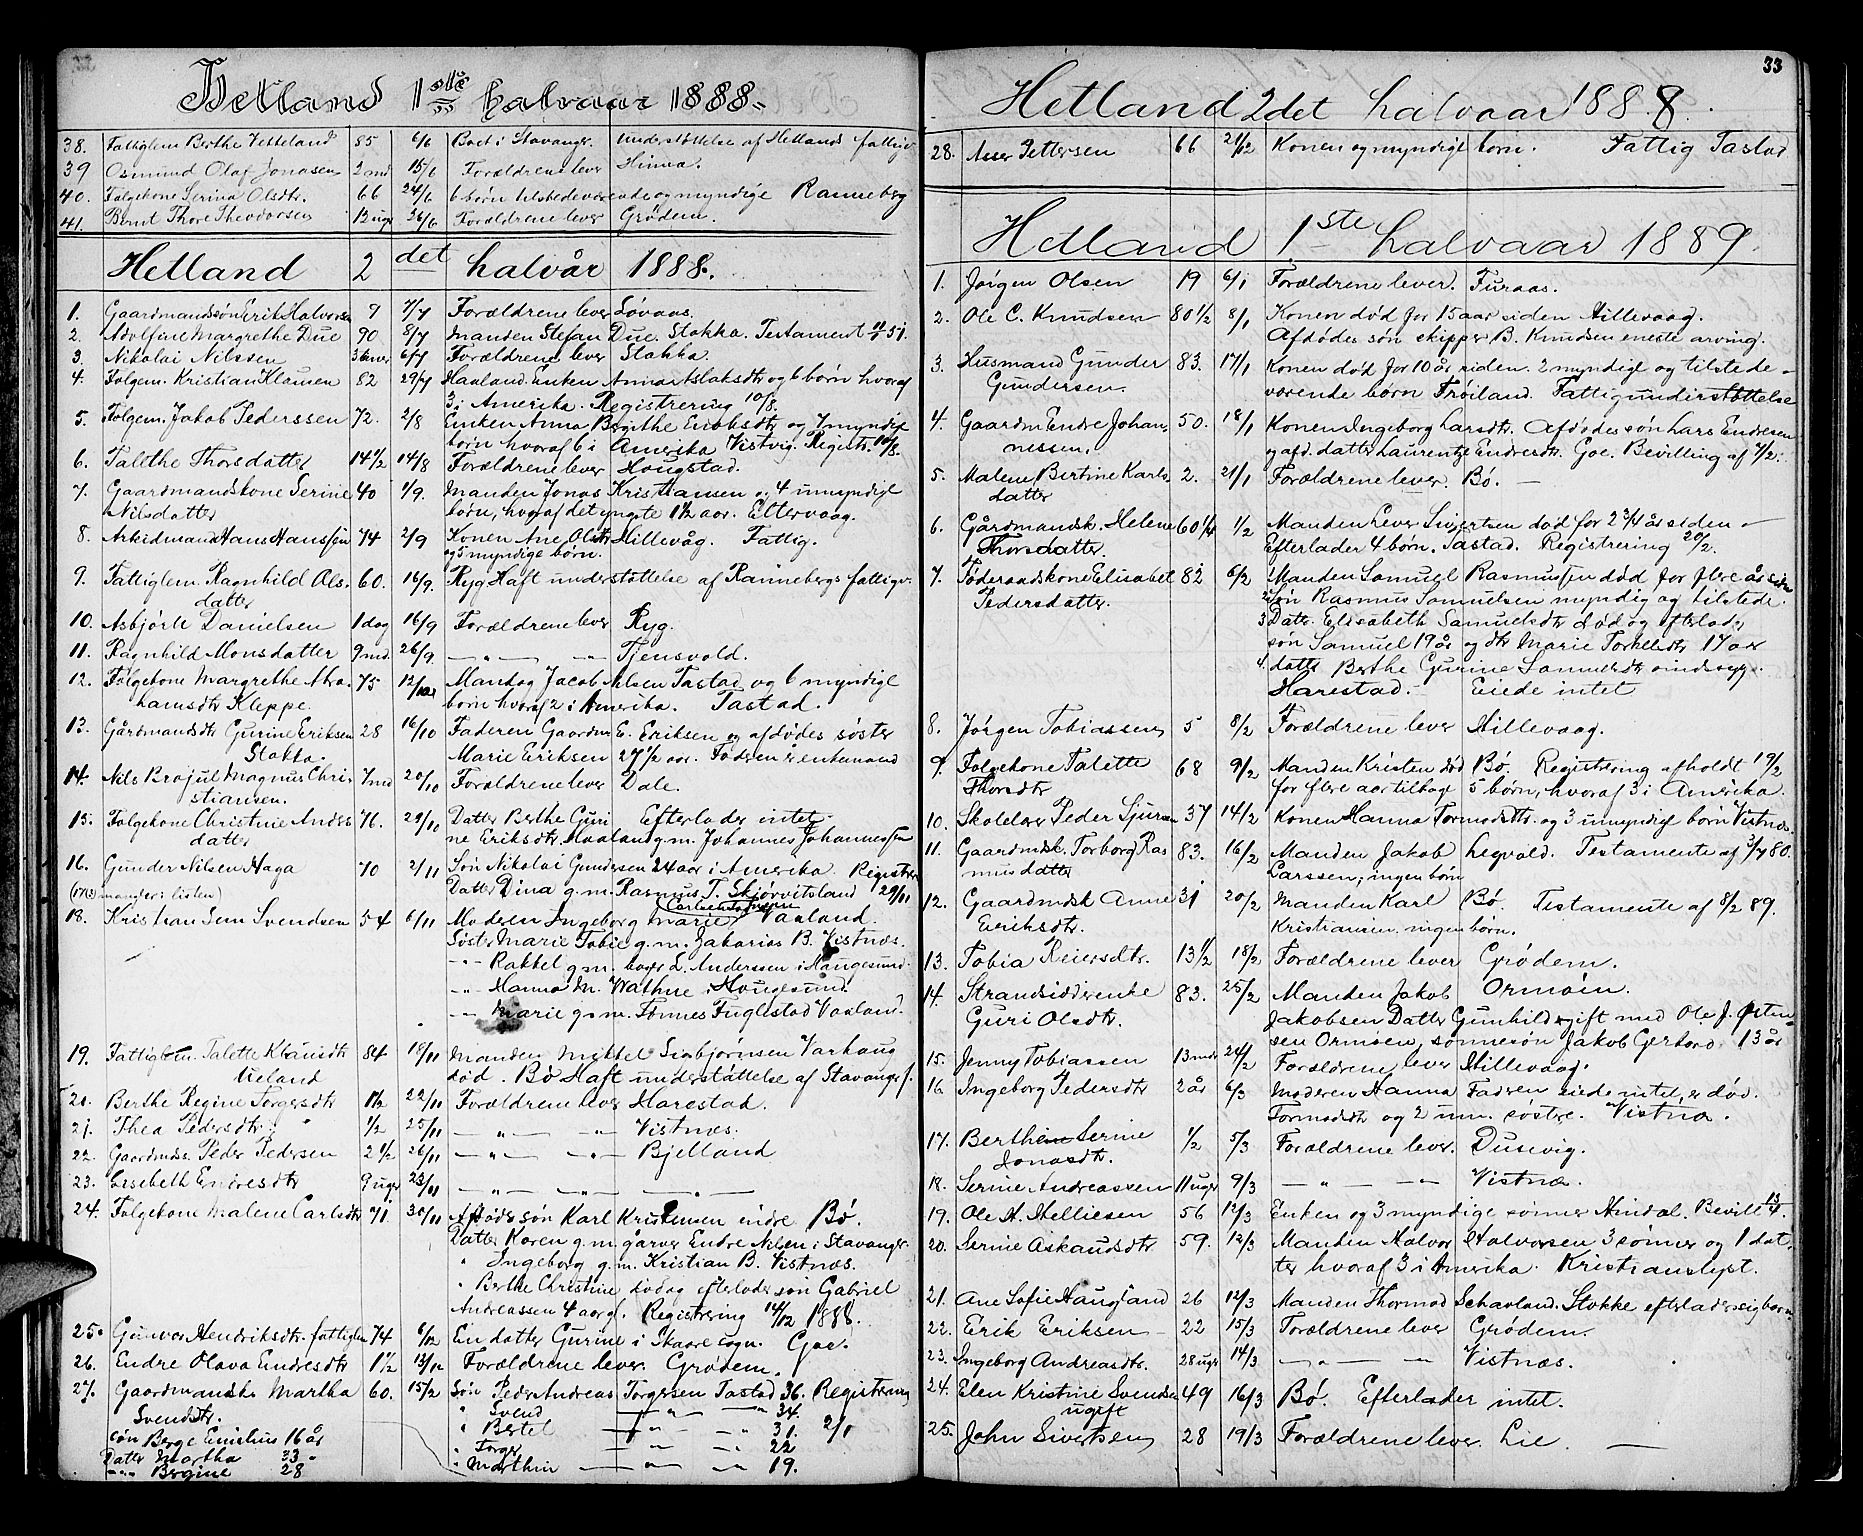 Hetland 1ste halvaar 1888.
38. Fattiglem Berthe Vetteland 85 6/6 Boet i Stavanger. understøttelse af Hetlands fattigv.
39 Osmund Olaf Jonasen 2 md 15/6 Forældrene lever Hinna.
40. Folgekone Serina Olsdtr. 66 24/6 6 børn tilstedeværende og myndige Ranneberg
41. Bernt Thore Theodorsen 12 uger 26/6 Forældrene lever Grødem.
Hetland 2det halvår 1888.
1. Gaardmandssøn Erik Halvorsen 9 7/7 Forældrene lever Løvaas.
2. Adolfine Margrethe Due 90 8/7 Manden Stefan Due. Stokka. Testament 51.
3. Nikolai Nilssen 6/7 Forældrene lever Stokka.
4. Folgem. Kristian Klausen 82 29/7 Haaland. Enken Anna Aslaksdtr og 6 børn hvoraf
3 i Amerika. Registrering 10/8.
5. Folgem. Jakob Pederssen 72. 2/8 Enken Anna Bergithe Eriksdtr og 7 myndige
børn hvoraf 6 i Amerika Vistvig. Registr. 10/8.
6. Talethe Thorsdatter 14 1/2 14/8 Forældrene lever Hougstad.
7. Gaardmandskone Serine 40 1/9. Manden Jonas Kristiansen og 4 umyndige
Nilsdatter børn, hvoraf det yngste 1 1/2 aar. Ettervaag.
8. Arbeidmand Hans Hanssen 74 2/9 Konen Ane Olsdtr Hillevåg. Fattig.
og 5 myndige børn.
9. Fattiglem. Ragnhild Ols- 60. 16/9. Ryg Haft understøttelse af Rannebergs fattigv.
datter
10. Asbjørn Danielsen 1 dag 16/9 Forældrene lever Ryg.
11. Ragnhild Monsdatter 9 md. 26/9. — " — " Tjensvold.
12. Folgekone Margrethe Abra- 75 12/10 Mand og Jacob Nilsen Tastad og 6 myndige
hamsdtr Kleppe. børn hvoraf 2 i Amerika. Tastad.
13. Gårdmandsdtr Gurine Eriksen 28 16/10 Faderen Gaardm E. Eriksen og afdødes søster
Stokka. Marie Eriksen 27 1/2 aar. Faderen er enkemand
14. Nils Magnus Chri- 7 md 20/10 Forældrene lever Dale.
stiansen.
15. Folgekone Christine Anders 76. 29/10 Datter Berthe Guri Efterlader intet
datter ne Eriksdtr. Haaland g.m. Johannes Johannessen
16. Gunder Nilsen Haga 70 2/11 Søn Nikolai Gundersen 24 aar i Amerika. Registrer
(17 mangler i listen) Datter Dina g.m. Rasmus T. Skjørvitsland 29/11
18. Kristian Sem Svendsen 54 6/11 Moderen Ingeborg Marie Vaaland.
Søster Marie Tobie g.m. Zakarias B. Vistnæs.
- " - Rakkel g.m. L. Anderssen i Haugesund.
- " - Hanna M. Wathne i Haugesund.
- " - Marie g.m. Tønnes Fuglestad Vaaland.
19. Fattiglem. Talette Klausdtr 84 18/11 Manden Mikkel Sæbjørnsen Varhaug
Ueland død. Bø Haft understøttelse af Stavanger f.
20. Berthe Regine Torgersdtr 1 1/2 22/11 Forældrene lever Harestad.
21. Thea Pedersdtr. " 1/2 25/11 — " — " — Vistnæs.
22. Gaardmds. Peder Pedersen 2 1/2 26/11 — " — " — Bjelland
23. Lisebeth Endresdtr 9 uger 23/11 — " — " — " —
24. Folgekone Malene Carlsdtr 71. 30/11 Afdøds søn Karl Kristensen indre Bø.
Datter Karen g.m. garver Endre Nilsen i Stavanger.
" Ingeborg g.m. Kristian B. Vistnæs.
" Berthe Christine død og efterlader søn Gabriel
Andreassen 4 aar gl. Registrering 14/12 1888.
25. Gunvor Hendriksdtr. fattiglem 74 6/12 En datter Gurine i Skaare sogn. Goe.
26. Endre Olava Endresdtr 1 1/2 13/12 Forældrene lever. Grødem.
27. Gaardmandsk. Martha 60. 15/2 Søn Peder Andreas Torgersen Tastad 36. Registrering
Svendsdtr. " Svend — " — " 34.
søn Berge Emelius 16 år " Bertel — " — " 31. 2/1
Datter Martha 33 " " Torger — " — " 22
- " - Bergine 28 " Marthin — — 19.
33
Hetland 2det halvaar 1888.
28. Asser Pettersen 66 21/12 Konen og myndige børn. Fattig Tastad
Hetland 1ste halvaar 1889.
1. Jørgen Olsen 19 6/1 Forældrene lever. Furaas.
2. Ole C. Knudsen 80 1/2 8/1 Konen død for 15 aar siden Hillevaag.
Afdødes søn skipper B. Knudsen eneste arving.
3. Husmand Gunder 83. 17/1 Konen død for 10 år siden. 2 myndige og tilstede-
Gundersen. værende børn Trøiland. Fattigunderstøttelse
4. Gaardm Endre Johan- 50. 18/1 Konen Ingeborg Larsdtr. Afdødes søn Lars Endresen
nessen. og afd. datter Laurentze Endresdtr. Goe. Bevilling af 4/2.
5. Malene Bertine Karls- 2. 21/1 Forældrene lever. Bø. —
datter
6. Gårdmandsk. Helene 60 1/4 1/2 Manden Siver Sivertsen død for 2 3/4 år siden —
Thorsdatter. Efterlader 4 børn. Tastad. Registrering 20/2.
7. Føderaadskone Elisabet 82 6/2 Manden Samuel Rasmussen død for flere år siden
Pedersdatter. Søn Rasmus Samuelsen myndig og tilstede.
3 Datter. Elisabeth Samuelsdtr død og efterlader
søn Samuel 19 år og dtr Marie Torkelsdtr 17 aar
4. datter Berthe Gurine Samuelsdtr sindssyg.
Harestad. — Eiede intet
8. Jørgen Tobiassen 5 8/2 Forældrene lever Hillevaag.
9. Folgekone Talette 68 9/2 Manden Kristen død Bø. Registrering afholdt 19/2
Thorsdtr for flere aar tilbage 5 børn, hvoraf 3 i Amerika.
10. Skolelærer Peder Sjursen 37 14/2 Konen Hanna Tormodsdtr. og 3 umyndige børn Vistnæs.
11. Gaardmdsk. Torborg Ras 83. 16/2 Manden Jakob Legvold. Testamente af 3/7 80.
musdatter Larssen, ingen børn
12. Gaardmdsk Anne 31 20/2 Manden Karl Bø. Testamente af 8/2 89.
Eeriksdtr. Kristiansen, ingen børn.
13. Tobia Reiersdtr. 13 1/2 18/2 Forældrene lever Grødem.
14. Strandsidderenke 83. 25/2 Manden Jakob Ormøin.
Guri Olsdtr. Jakobsen Datter Gunhild gift med Ole J. Østen-
sen Ormøen, sønnesøn Jakob Gerhard 13 år
15. Jenny Tobiassen 13 mdr 24/2 Forældrene lever Hillevaag.
16. Ingeborg Pedersdtr 2 år 6/3 Moderen Hanna Fadren eiede intet, er død.
Tormodsdtr og 2 um. søstre. Vistnæ.
17. Berthe Serine 1/2 5/3 Forældrene lever. Dusevig.
Jonasdtr.
18. Serine Andreassen 11 uger 9/3 — " — " — Vistnæ.
19. Ole H. Helliesen 56 12/3 Enken og 3 myndige sønner Hindal. Bevill 13/4.
20. Serine Askaudsdtr 59. 12/3 Manden Halvor Halvorsen 3 sønner og 1 dat-
ter hvoraf 3 i Amerika. Kristianslyst.
21. Ane Sofie Haugland 26 12/3 Manden Thormod Schaoland. Stokke efterlader sig barn
22. Erik Eriksen 22 15/3 Forældrene lever Grødem.
23. Ingeborg Andreasdtr. 28 uger 14/3 — " — " Vistnæs.
24. Elen Kristine Svendsen 49 16/3 Bø. Efterlader intet.
ugift
25. John Sivertsen 28 19/3 Forældrene lever. Lie. —